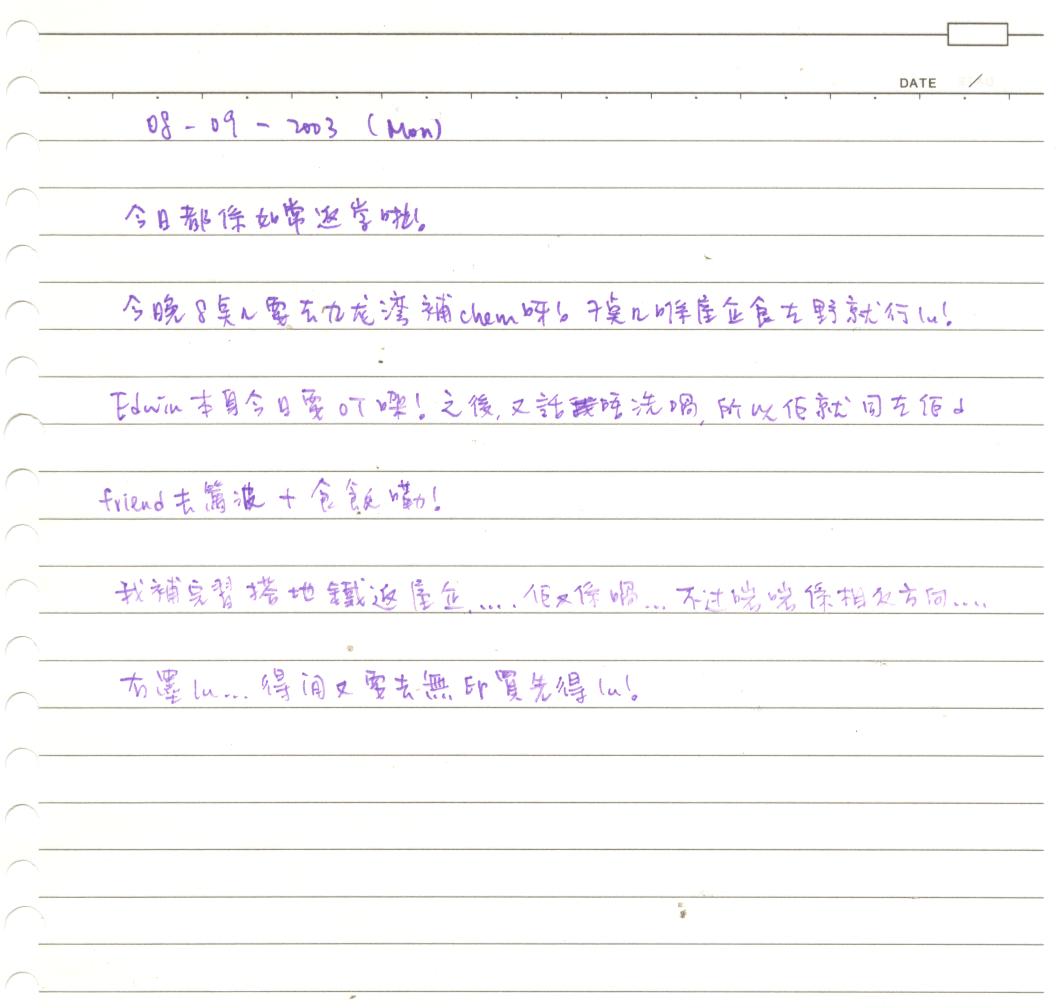 DATE /
08-09-2003 (Mon)
今日都係如常返学啦!
今晚8点n要去九龙湾補chem呀! 7点n喺屋企食左野就行lu!
Edwin本身今日要OT㗎! 之後, 又話唔洗喎, 所以佢就同左佢d
friend去篤波+食飯嘞!
我補完習搭地鐵返屋企..... 佢又係喎... 不过啱啱係相反方向....
冇墨lu... 得闲又要去無印買先得lu!